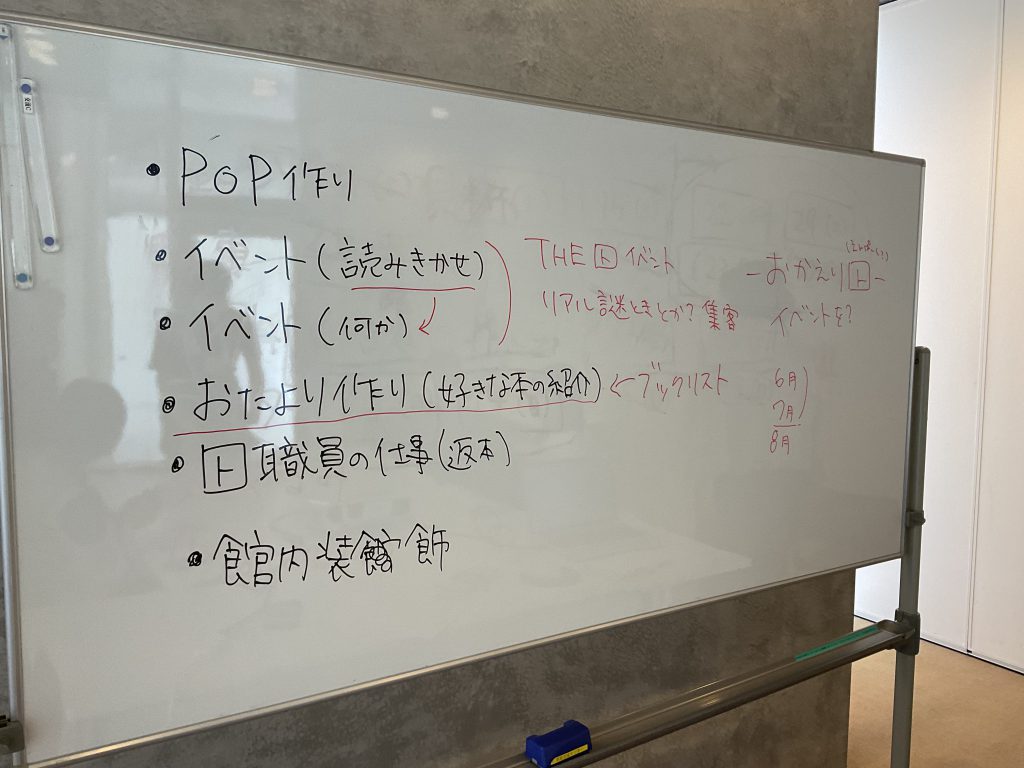 • POP作り
• イベント(読みきかせ)
• イベント(何か)
• おたより作り(好きな本の紹介) ← ブックリスト
• 図職員の仕事(返本)
• 館内装飾
THE 図 イベント
リアル謎ときとか? 集客
-おかえり図-
イベントを?
6月
7月
8月